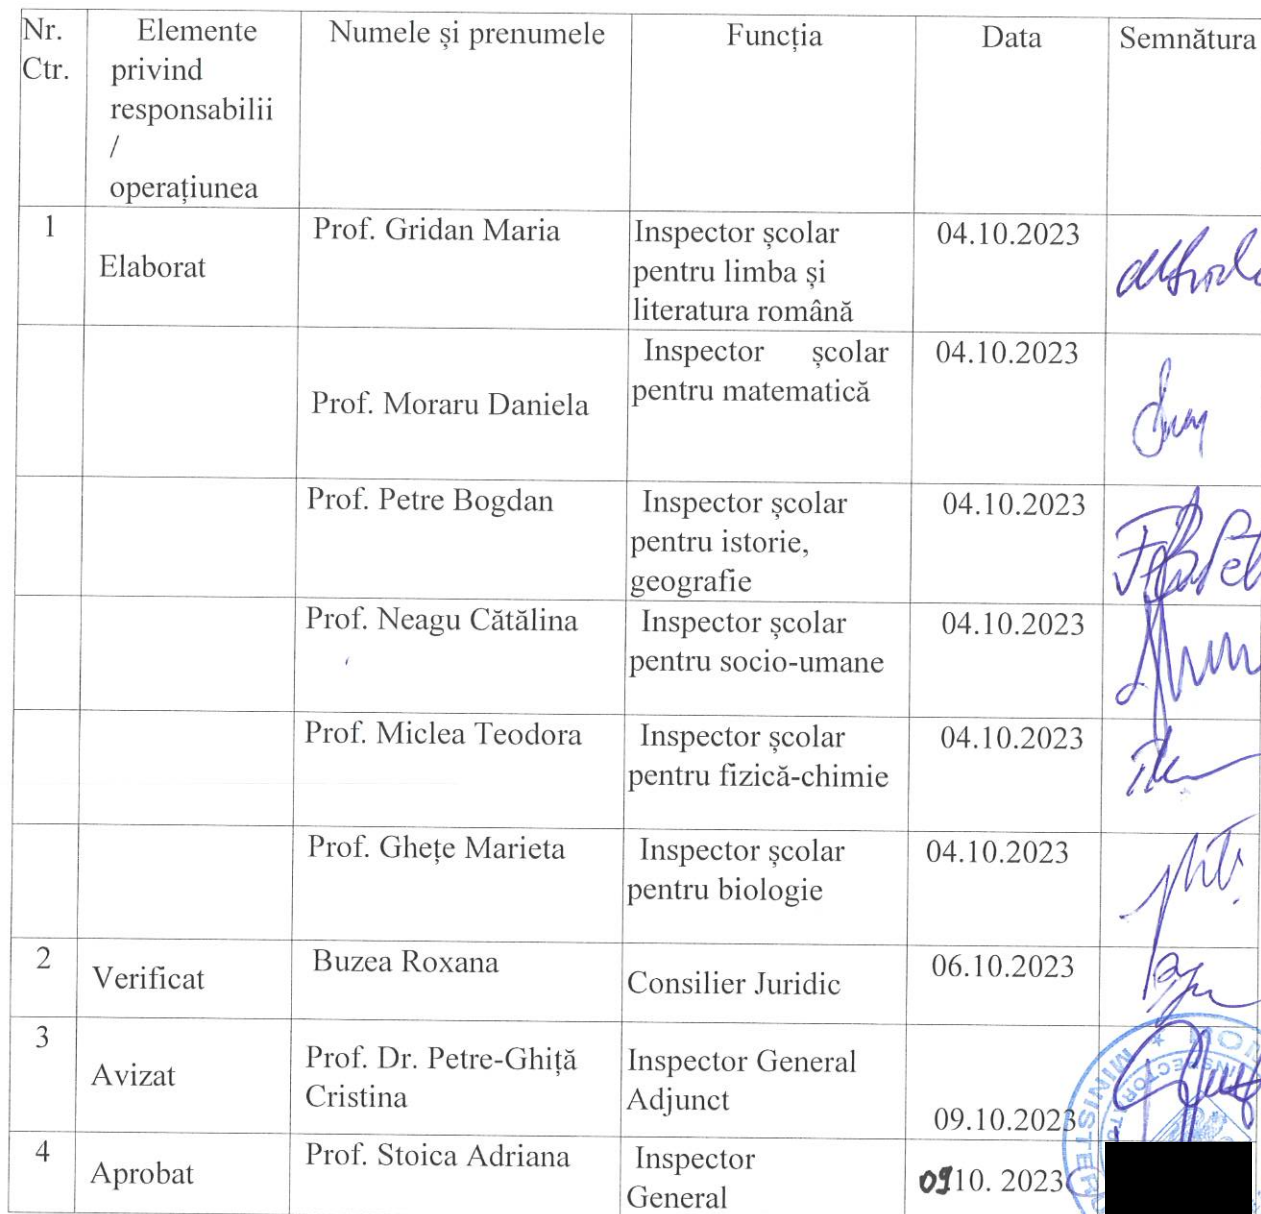 Nr. Ctr.
Elemente
privind
responsabilii
/
operațiunea
Numele și prenumele
Funcția
Data
Semnătura
1
Elaborat
Prof. Gridan Maria
Inspector școlar
pentru limba și
literatura română
04.10.2023
Prof. Moraru Daniela
Inspector școlar
pentru matematică
04.10.2023
Prof. Petre Bogdan
Inspector școlar
pentru istorie,
geografie
04.10.2023
Prof. Neagu Cătălina
Inspector școlar
pentru socio-umane
04.10.2023
Prof. Miclea Teodora
Inspector școlar
pentru fizică-chimie
04.10.2023
Prof. Ghețe Marieta
Inspector școlar
pentru biologie
04.10.2023
2
Verificat
Buzea Roxana
Consilier Juridic
06.10.2023
3
Avizat
Prof. Dr. Petre-Ghiță
Cristina
Inspector General
Adjunct
09.10.2023
4
Aprobat
Prof. Stoica Adriana
Inspector
General
09 10. 2023